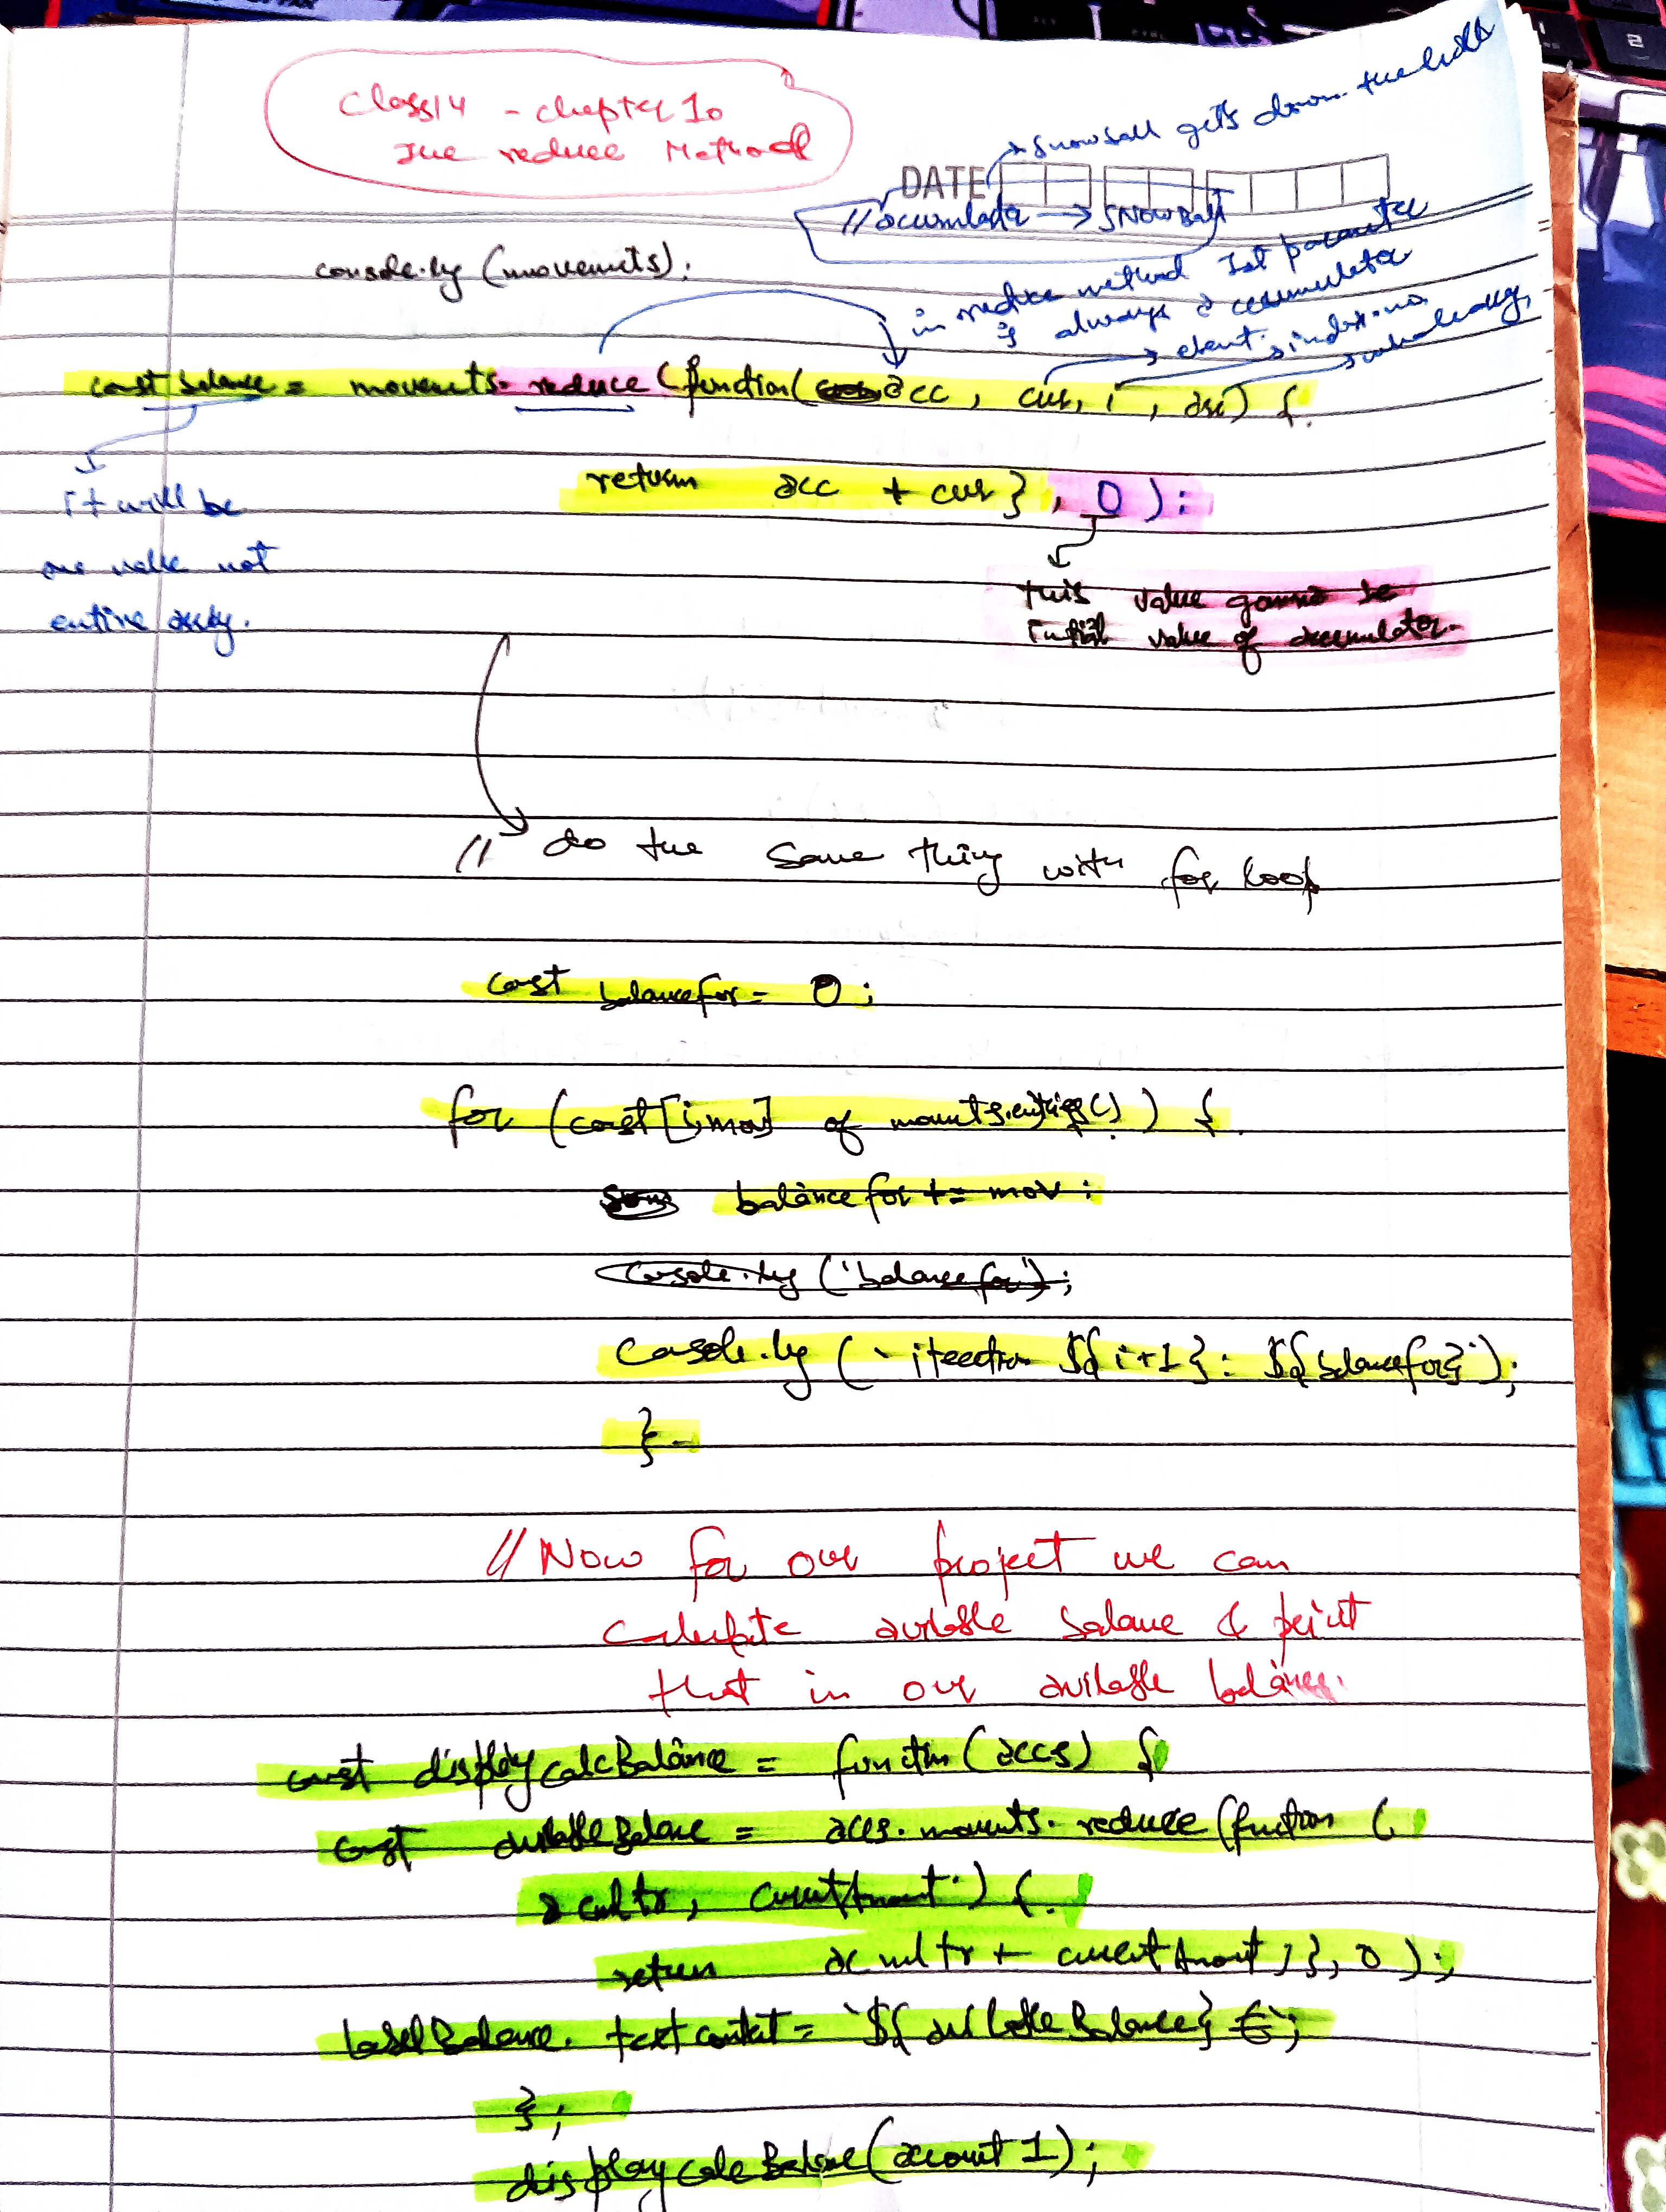 class 14 - chapter 10
The reduce Method
→ snowball gets down the hills
DATE
// accumlada → SNOWBall
console.log (movements);
in reduce method 1st parameter
is always a accumulator
→ element
→ index no
→ whole array,
const balance = movements. reduce (function( acc, cur, i, arr) {
return acc + cur }, 0 );
it will be
one value not
entire array.
this value gonna be
initial value of accumulator.
// do the same thing with for loop
const balancefor = 0 ;
for (const [i,mov] of movements.entries() ) {
balancefor += mov ;
console.log ('balancefor');
console.log ( ` iteration ${ i+1 } : ${ balancefor}`);
}
// Now for our project we can
calculate avilable balance & print
that in our avilable balance.
const displaycalcBalance = function (accs) {
const avilableBalance = accs. movements. reduce (function (
acmltr, currentAmount ) {
return acmltr + currentAmount ; }, 0 ) ;
labelBalance. textcontent = `${ avilableBalance} €`;
} ;
displaycalcBalance (account 1) ;